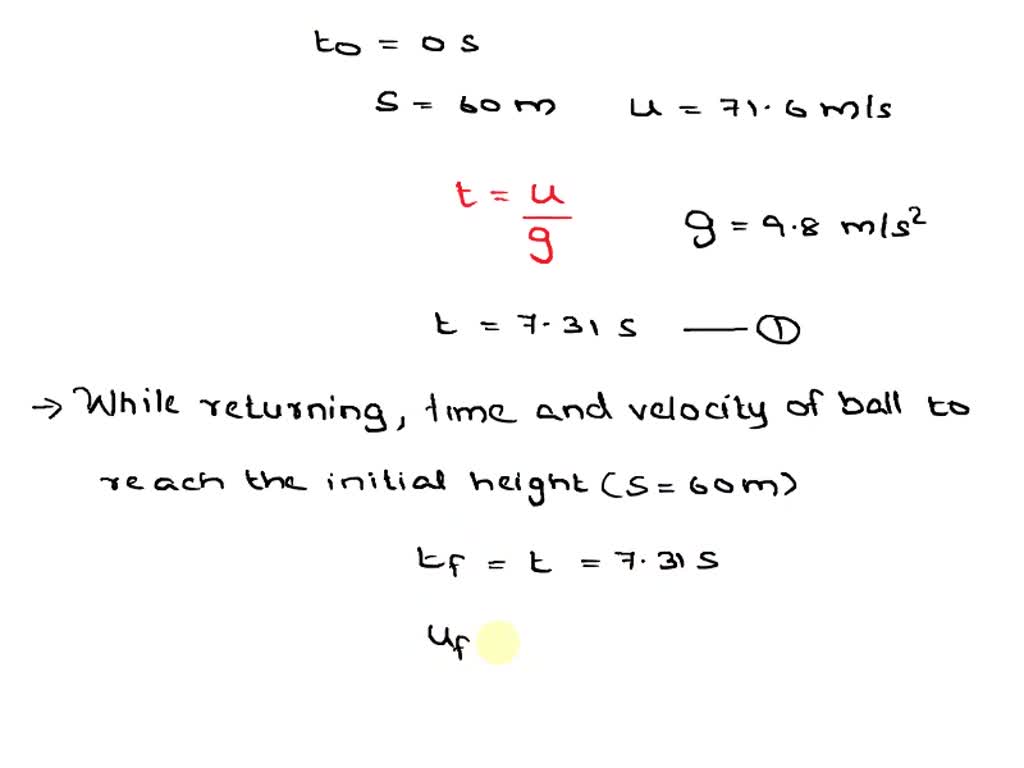 to = 0 s
S = 60 m u = 71.6 m/s
t = u/g g = 9.8 m/s²
t = 7.31 s —— ①
→ While returning, time and velocity of ball to
reach the initial height (S = 60m)
tf = t = 7.31 S
uf